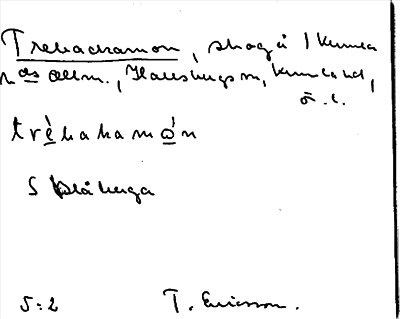 Trehackamon, skog å Kumla
n:as allm., Hallsbergs sn, Kumla hd,
Ö. L.
trèhakamó̱n
S Blåberga
5:2 T. Ericsson.